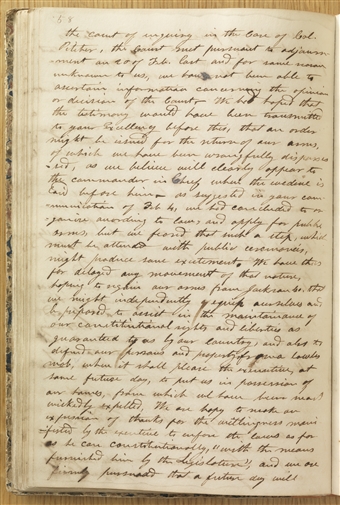 58
the Court of inquiry in the case of Col.
Pitcher, the Court met pursuant to adjourn-
ment on 20 of Feb. last and for some reason
unknown to us, we have not been able to
ascertain information concerning the opinion
or decision of the Court. We had hoped that
the testimony would have been transmitted
to your Excellency before this, that an order
might be issued for the return of our arms,
of which we have been wrongfully disposses-
sed, as we believe will clearly appear to
the commander in Chief when the evidence is
laid before him. As suggested in your com-
munication of Feb 4, we had concluded to or-
ganize according to law, and apply for public
arms, but we feared that such a step, which
must be attended with public ceremonies,
might produce some excitement. We have there-
for delayed any movement of that nature,
hoping to regain our arms from Jackson Co. that
we might independently equip ourselves and
be prepared to assist in the maintainance of
our constitutional rights and liberties as
guaranteed to us by our country, and also to
defend our persons and property from a lawless
mob, when it shall please the executive, at
some future day, to put us in possession of
our homes, from which we have been most
wickedly expelled. We are happy to make an
expression of thanks for the willingness mani-
fested by the executive to enforce the laws as far
as he can constitutionally, "with the means
furnished him by the Legislature", and we are
firmly persuaded that a future day will